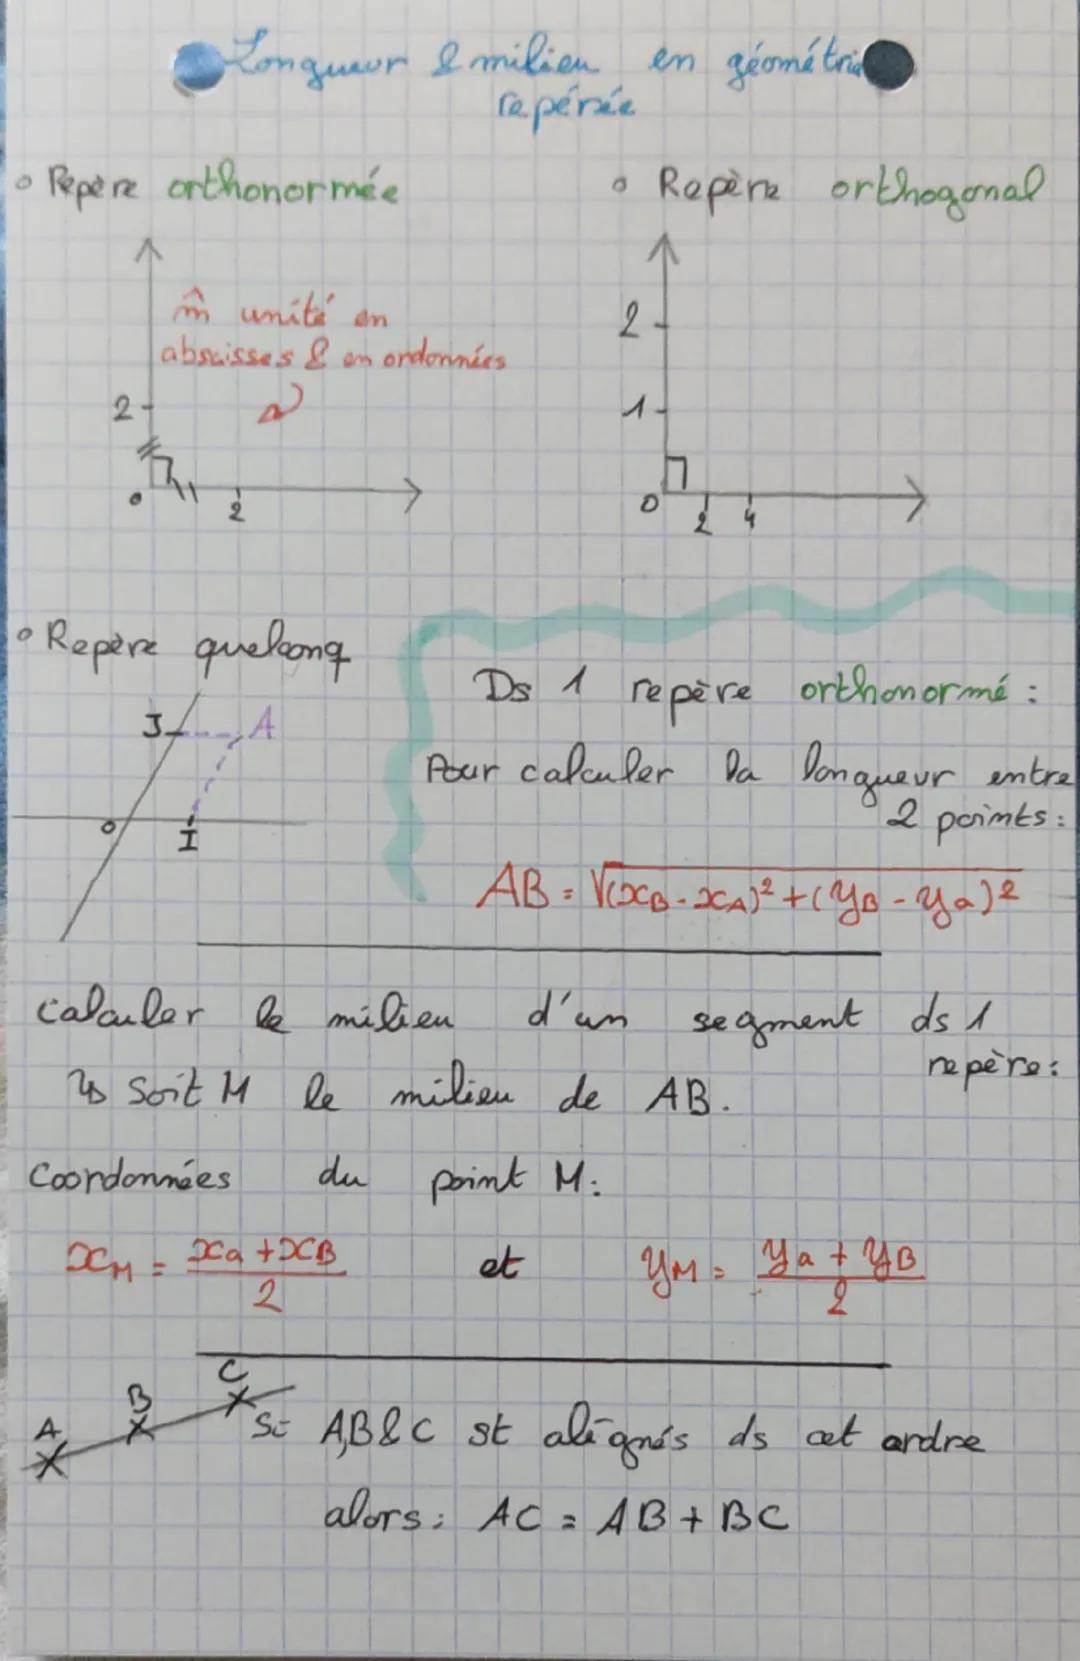 Longueur & milieu en géométrie
repérée
° Repère orthonormée
° Repère orthogonal
m̂ unité en
abscisses & en ordonnées
2
0
2
2
1
0
2
4
° Repère quelconq
J
A
0
I
Ds 1 repère orthonormé :
Pour calculer la longueur entre
2 points :
AB = √(xB - xA)² + (yB - ya)²
calculer le milieu d'un segment ds 1
repère :
↳ Soit M le milieu de AB.
Coordonnées du point M :
xM = xa + xB / 2 et yM = ya + yB / 2
A
B
C
Si A,B & C st alignés ds cet ordre
alors : AC = AB + BC